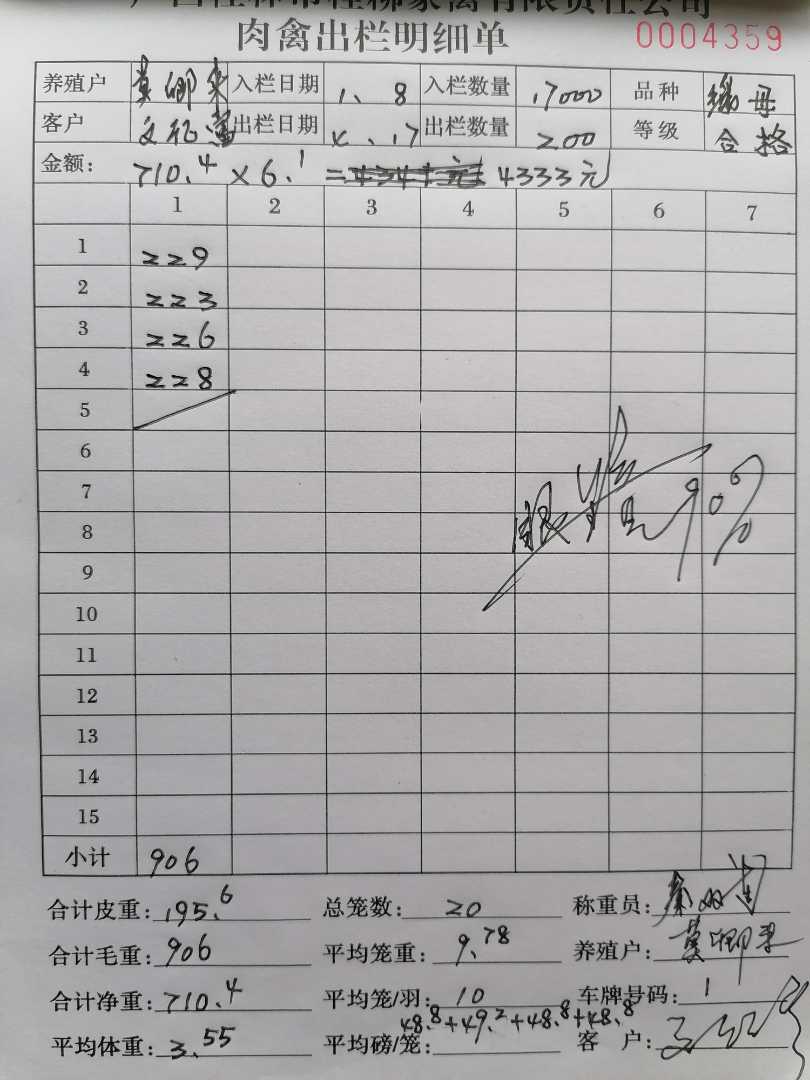 广西桂林市桂柳家禽有限责任公司
肉禽出栏明细单 0004359
养殖户 莫卿来 入栏日期 1、8 入栏数量 17000 品种
客户 出栏日期 4、17 出栏数量 200 等级 合格
金额: 710.4 × 6.1 = 4333元
1 2 3 4 5 6 7
1 229
2 223
3 226
4 228
5
6
7
8
9
10
11
12
13
14
15
90%
小计 906
合计皮重: 195.6 总笼数: 20 称重员:
合计毛重: 906 平均笼重: 9.78 养殖户: 莫卿来
合计净重: 710.4 平均笼/羽: 10 车牌号码: 1
48.8+49.2+48.8+48.8
合计体重: 3.55 平均磅/笼: 客 户: